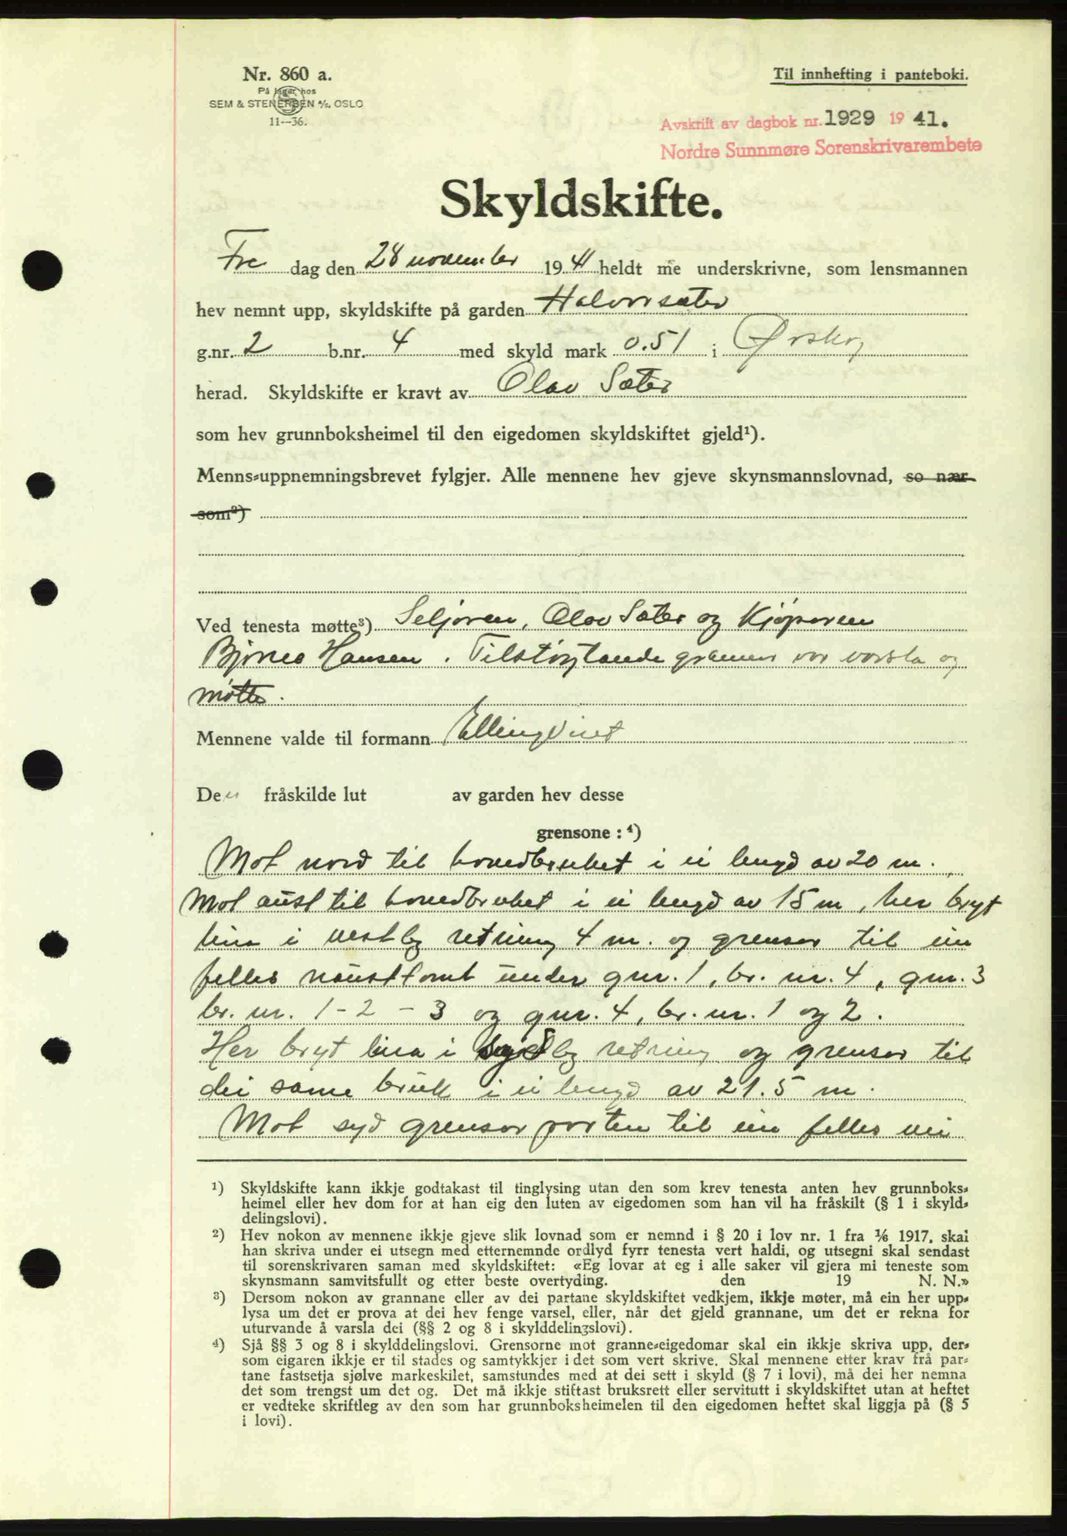 Nr. 860 a.
På lager hos
SEM & STENERSEN A/S. OSLO
11—36.
Til innhefting i panteboki.
Avskrift av dagbok nr. 1929 19 41.
Nordre Sunnmøre Sorenskrivarembete
Skyldskifte.
Fre dag den 28 november 1941 heldt me underskrivne, som lensmannen
hev nemnt upp, skyldskifte på garden Halvorsæter
g.nr. 2 b.nr. 4 med skyld mark 0.51 i Ørskog
herad. Skyldskifte er kravt av Olav Sæter
som hev grunnboksheimel til den eigedomen skyldskiftet gjeld¹).
Menns=uppnemningsbrevet fylgjer. Alle mennene hev gjeve skynsmannslovnad, so nær
som²)
Ved tenesta møtte³) Seljaren, Olav Sæter og Kjøparen
Bjørnes Hansen. Tilstøytande granner var varsla og
møtte.
Mennene valde til formann Elling Viset
Den fråskilde lut av garden hev desse
grensone : ⁴)
Mot nord til hovedbruket i ei lengd av 20 m.
Mot aust til hovedbruket i ei lengd av 15 m, her bryt
lina i vestleg retning 4 m. og grensar til ein
felles nausttomt under gnr. 1, br. nr. 4, gnr. 3
br. nr. 1 - 2 - 3 og gnr. 4, br. nr. 1 og 2.
Her bryt lina i sydleg retning og grensar til
dei same bruk i ei lengd av 21.5 m.
Mot syd grensar parten til ein felles vei
¹) Skyldskifte kann ikkje godtakast til tinglysing utan den som krev tenesta anten hev grunnboks=
heimel eller hev dom for at han eig den luten av eigedomen som han vil ha fråskilt (§ 1 i skyld=
delingslovi).
²) Hev nokon av mennene ikkje gjeve slik lovnad som er nemnd i § 20 i lov nr. 1 fra 1/6 1917, skai
han skriva under ei utsegn med etternemnde ordlyd fyrr tenesta vert haldi, og utsegni skal sendast
til sorenskrivaren saman med skyldskiftet: «Eg lovar at eg i alle saker vil gjera mi teneste som
skynsmann samvitsfullt og etter beste overtyding. den 19 N. N.»
³) Dersom nokon av grannane eller av dei partane skyldskiftet vedkjem, ikkje møter, må ein her upp=
lysa um det er prova at dei hev fenge varsel, eller, når det gjeld grannane, um det er rekna for
uturvande å varsla dei (§§ 2 og 8 i skylddelingslovi).
⁴) Sjå §§ 3 og 8 i skylddelingslovi. Grensorne mot granne=eigedomar skal ein ikkje skriva upp, der=
som eigaren ikkje er til stades og samtykkjer i det som vert skrive. Skal mennene etter krav frå par=
tane fastsetja sjølve markeskilet, samstundes med at dei sett i skyld (§ 7 i lovi), må dei her nemna
det som trengst um det og. Det må ikkje stiftast bruksrett eller servitutt i skyldskiftet utan at heftet
er vedteke skriftleg av den som har grunnboksheimelen til den eigedomen heftet skal liggja på (§ 5
i lovi).